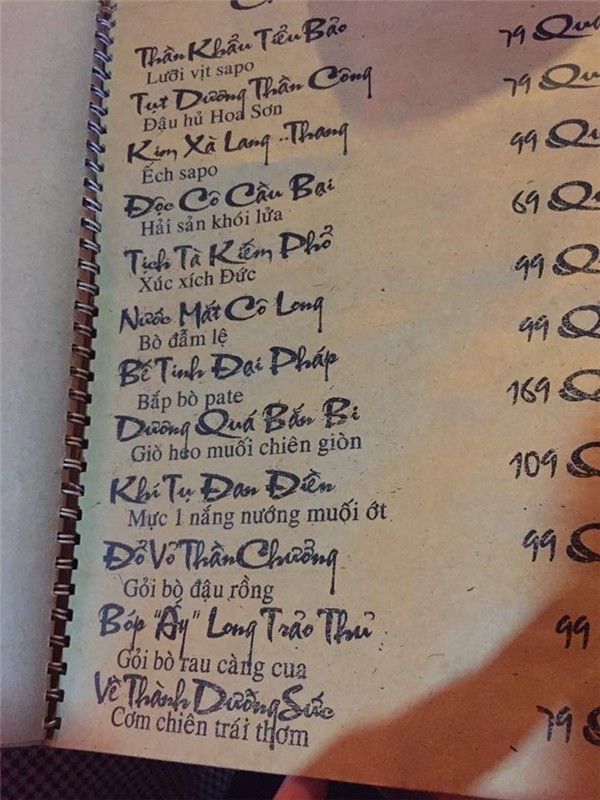 Thần Khẩu Tiểu Bảo 79 Quá
Lưỡi vịt sapo
Tụt Dương Thần Công 79 Qu
Đậu hủ Hoa Sơn
Kim Xà Lang ..Thang 99 Qu
Ếch sapo
Độc Cô Cầu Bại 69 Qu
Hải sản khói lửa
Tịch Tà Kiếm Phổ 99 Q
Xúc xích Đức
Nước Mắt Cô Long 99 Q
Bò đẫm lệ
Bế Tinh Đại Pháp 169 Q
Bắp bò pate
Dương Quá Bắn Bi 109
Giò heo muối chiên giòn
Khí Tụ Đan Điền 99
Mực 1 nắng nướng muối ớt
Đỏ Vỏ Thần Chưởng 99
Gỏi bò đậu rồng
Bóp "Ấy" Long Trảo Thủ 79
Gỏi bò rau càng cua
Về Thành Dưỡng Sức
Cơm chiên trái thơm